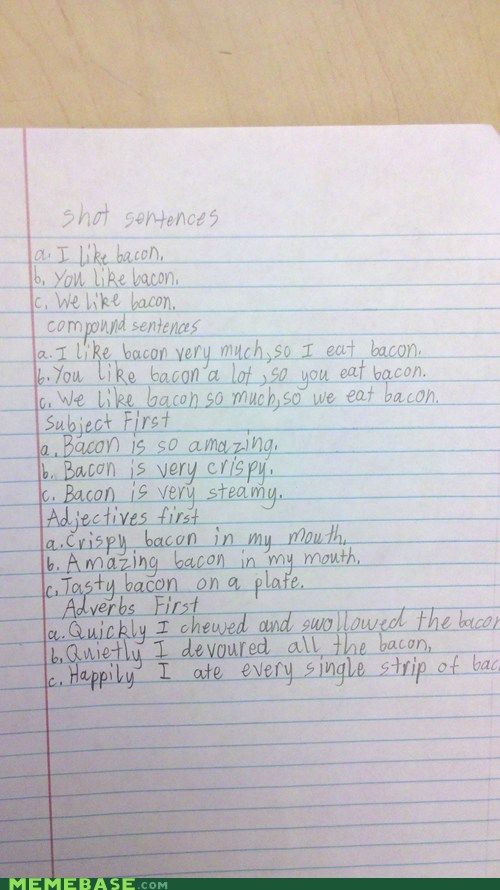 shot sentences
a. I like bacon.
b. You like bacon.
c. We like bacon.
compound sentences
a. I like bacon very much, so I eat bacon.
b. You like bacon a lot, so you eat bacon.
c. We like bacon so much, so we eat bacon.
Subject First
a. Bacon is so amazing.
b. Bacon is very crispy.
c. Bacon is very steamy.
Adjectives first
a. Crispy bacon in my mouth.
b. Amazing bacon in my mouth.
c. Tasty bacon on a plate.
Adverbs First
a. Quickly I chewed and swollowed the bacon
b. Quietly I devoured all the bacon.
c. Happily I ate every single strip of bac
MEMEBASE.COM